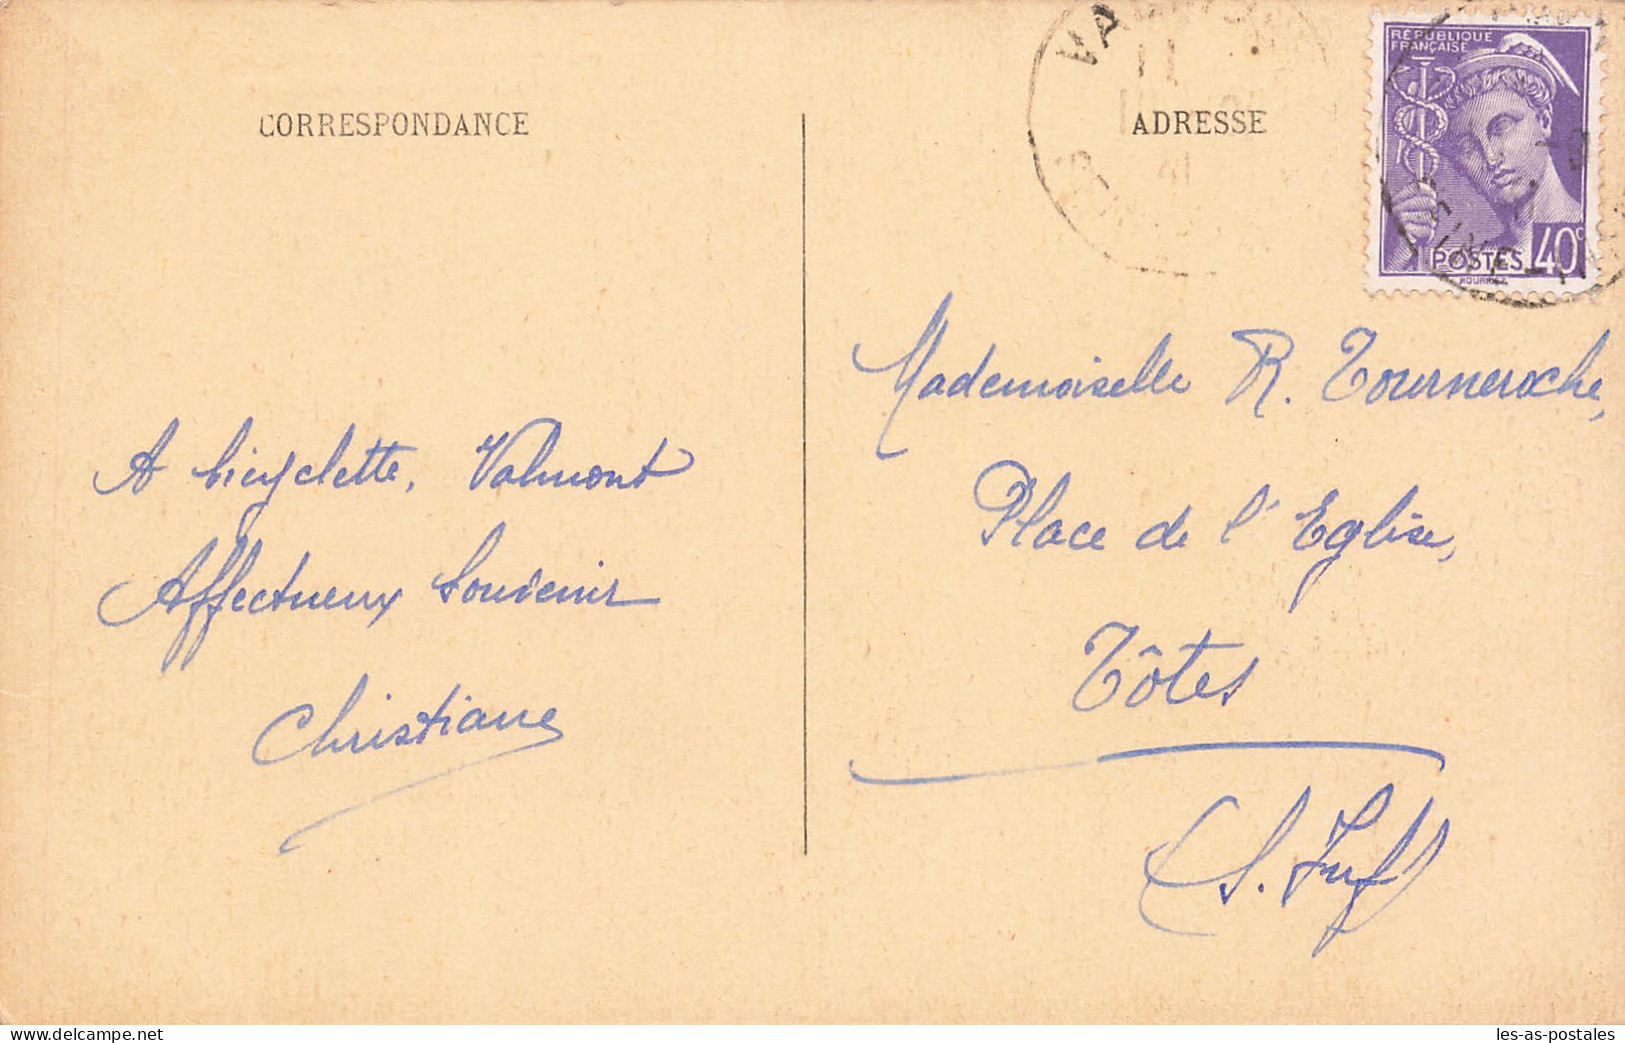 CORRESPONDANCE
A bicyclette, Valmont
Affectueux Souvenir
Christiane
ADRESSE
RÉPUBLIQUE
FRANÇAISE
POSTES 40c
Mademoiselle R. Tourneroche,
Place de l'Eglise,
Tôtes
(S. Inf)
delcampe.net
les-as-postales